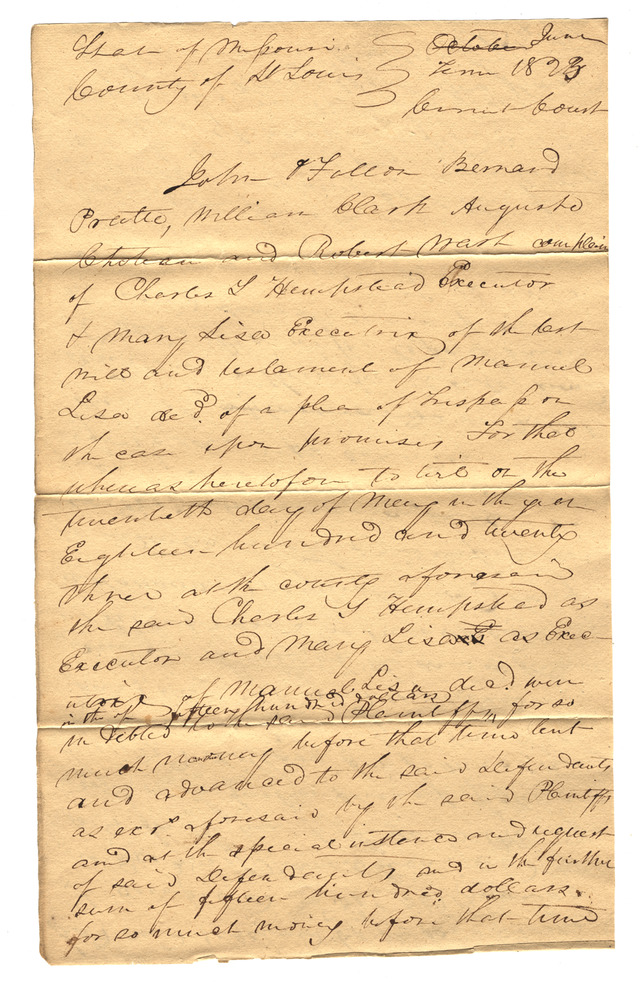 State of Missouri October June
County of St Louis Term 1823
Circuit Court
John O'Fallon Bernard
Pratte, William Clark Auguste
Choteau and Robert Wash complain
of Charles S Hempstead Executor
& Mary Lisa Executrix of the last
will and testament of Manuel
Lisa decd. of a plea of Trespass on
the case upon promises For that
whereas heretofore to wit on the
twentieth day of May in the year
Eighteen hundred and twenty
three at the county aforesaid
the said Charles S Hempstead as
Executor and Mary Lisa as Exec-
utrix of Manuel Lisa decd. were
in the sum of fifteen hundred dollars
indebted to the said Plaintiffs, for so
much money before that time lent
and advanced to the said Defendants
as exrs. aforesaid by the said Plaintiffs
and at the special instance and request
of said Defendants and in the further
sum of fifteen hundred dollars
for so much money before that time